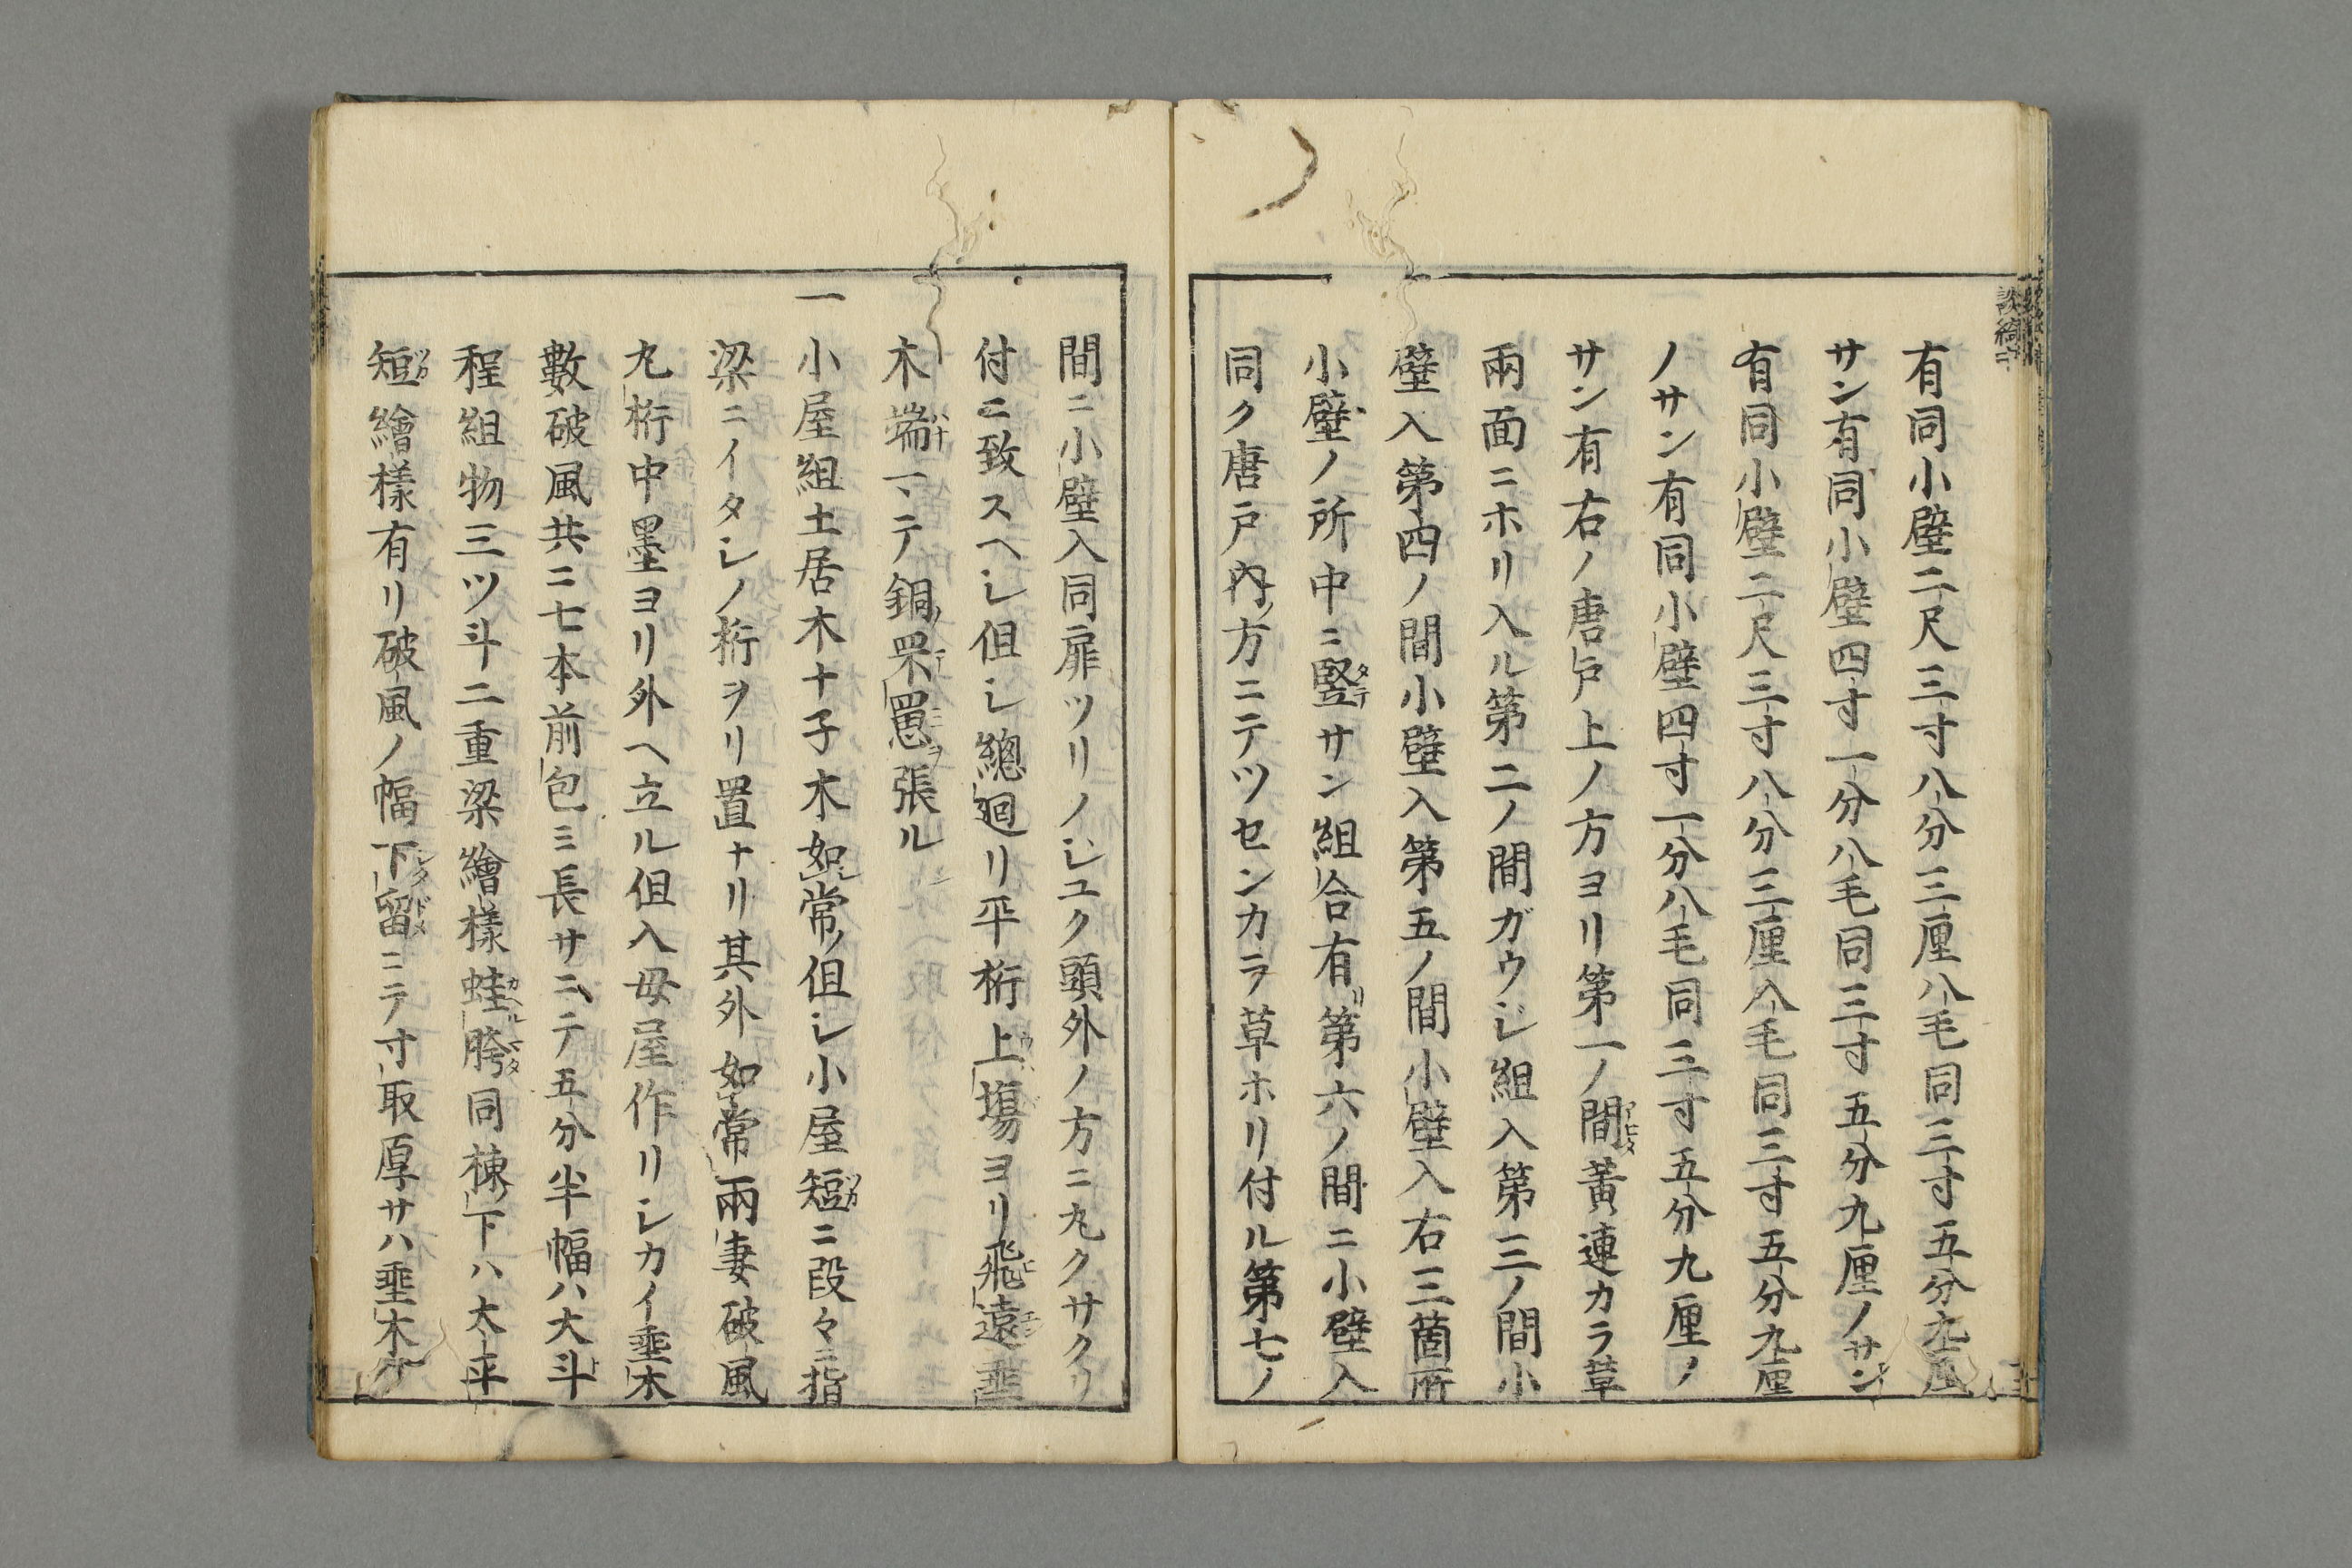 有同小壁二尺三寸八分三厘八毛同三寸五分九厘
サン有同小壁四寸一分八毛同三寸五分九厘ノサン
有同小壁二尺三寸八分三厘八毛同三寸五分九厘
ノサン有同小壁四寸一分八毛同三寸五分九厘ノ
サン有右ノ唐戸上ノ方ヨリ第一ノ間黄連カラ草
兩面ニホリ入ル第二ノ間ガウジ組入第三ノ間小
壁入第四ノ間小壁入第五ノ間小壁入右三箇所
小壁ノ所中ニ竪サン組合有リ第六ノ間ニ小壁入
同ク唐戸内ノ方ニテツセンカラ草ホリ付ル第七ノ
間ニ小壁入同扉ツリノシユク頭外ノ方ニ丸クサクリ
付ニ致スヘシ但シ總廻リ平桁上塲ヨリ飛遠垂
木端一テ銅罘罳ヲ張ル
一小屋組土居木十子木如シ常ノ但シ小屋短ニ段々ニ指
梁ニイタシノ桁ヲリ置ナリ其外如常兩妻破風
丸桁中墨ヨリ外ヘ立ル但入母屋作リシカイ垂木
數破風共ニ七本前包ミ長サニテ五分半幅ハ大斗
程組物三ツ斗二重梁繪樣蛙胯同棟下ハ大斗
短繪樣有リ破風ノ幅下留ニテ寸取厚サハ垂木